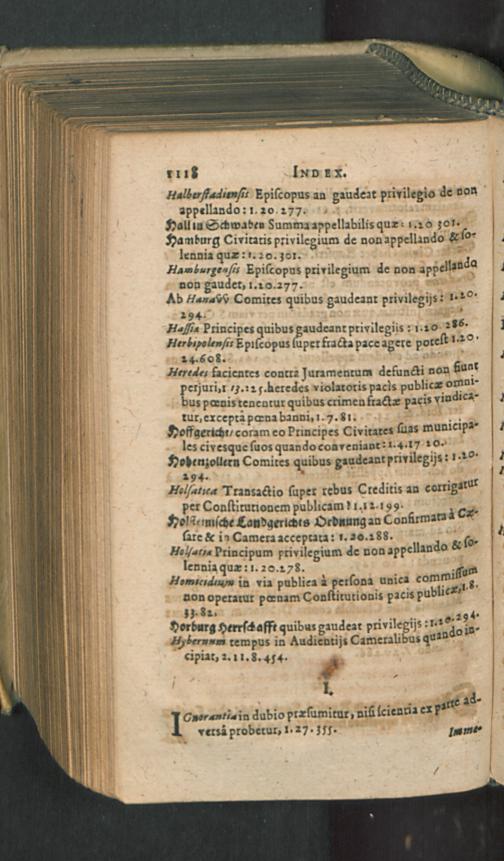 1118 INDEX.
Halberstadiensis Episcopus an gaudeat privilegio de non
appellando: 1. 20. 277.
Hall in Schwaben Summa appellabilis quæ: 1.20 301.
Hamburg Civitatis privilegium de non appellando & so-
lennia quæ: 1. 20. 301.
Hamburgensis Episcopus privilegium de non appellando
non gaudet, 1.20.277.
Ab Hanavv Comites quibus gaudeant privilegijs: 1.20.
294.
Hassia Principes quibus gaudeant privilegiis: 1.20 286.
Herbipolensis Episcopus super fracta pace agere potest 1.20.
24.608.
Heredes facientes contra Juramentum defuncti non fiunt
perjuri, 1 13.125. heredes violatoris pacis publicæ omni-
bus pœnis tenentur quibus crimen fractæ pacis vindica-
tur, exceptâ pœna banni, 1. 7. 81.
Hoffgericht/ coram eo Principes Civitates suas municipa-
les civesque suos quando conveniant: 1.4.17 20.
Hohenzollern Comites quibus gaudeant privilegijs: 1.20.
294.
Holsatica Transactio super rebus Creditis an corrigatur
per Constitutionem publicam? 1.12.199.
Holsteinische Landgerichts Ordnung an Confirmata à Cæ-
sare & in Camera acceptata: 1. 20.288.
Holsatiæ Principum privilegium de non appellando & so-
lennia quæ: 1. 20.278.
Homicidium in via publica à persona unica commissum
non operatur pœnam Constitutionis pacis publicæ, 1.8.
33.82.
Horburg Herrschafft quibus gaudeat privilegijs: 1.20.294.
Hybernum tempus in Audientijs Cameralibus quando in-
cipiat, 2. 11.8.454.
I.
IGnorantia in dubio præsumitur, nisi scientia ex parte ad-
versâ probetur, 1. 27. 355.
Imme-